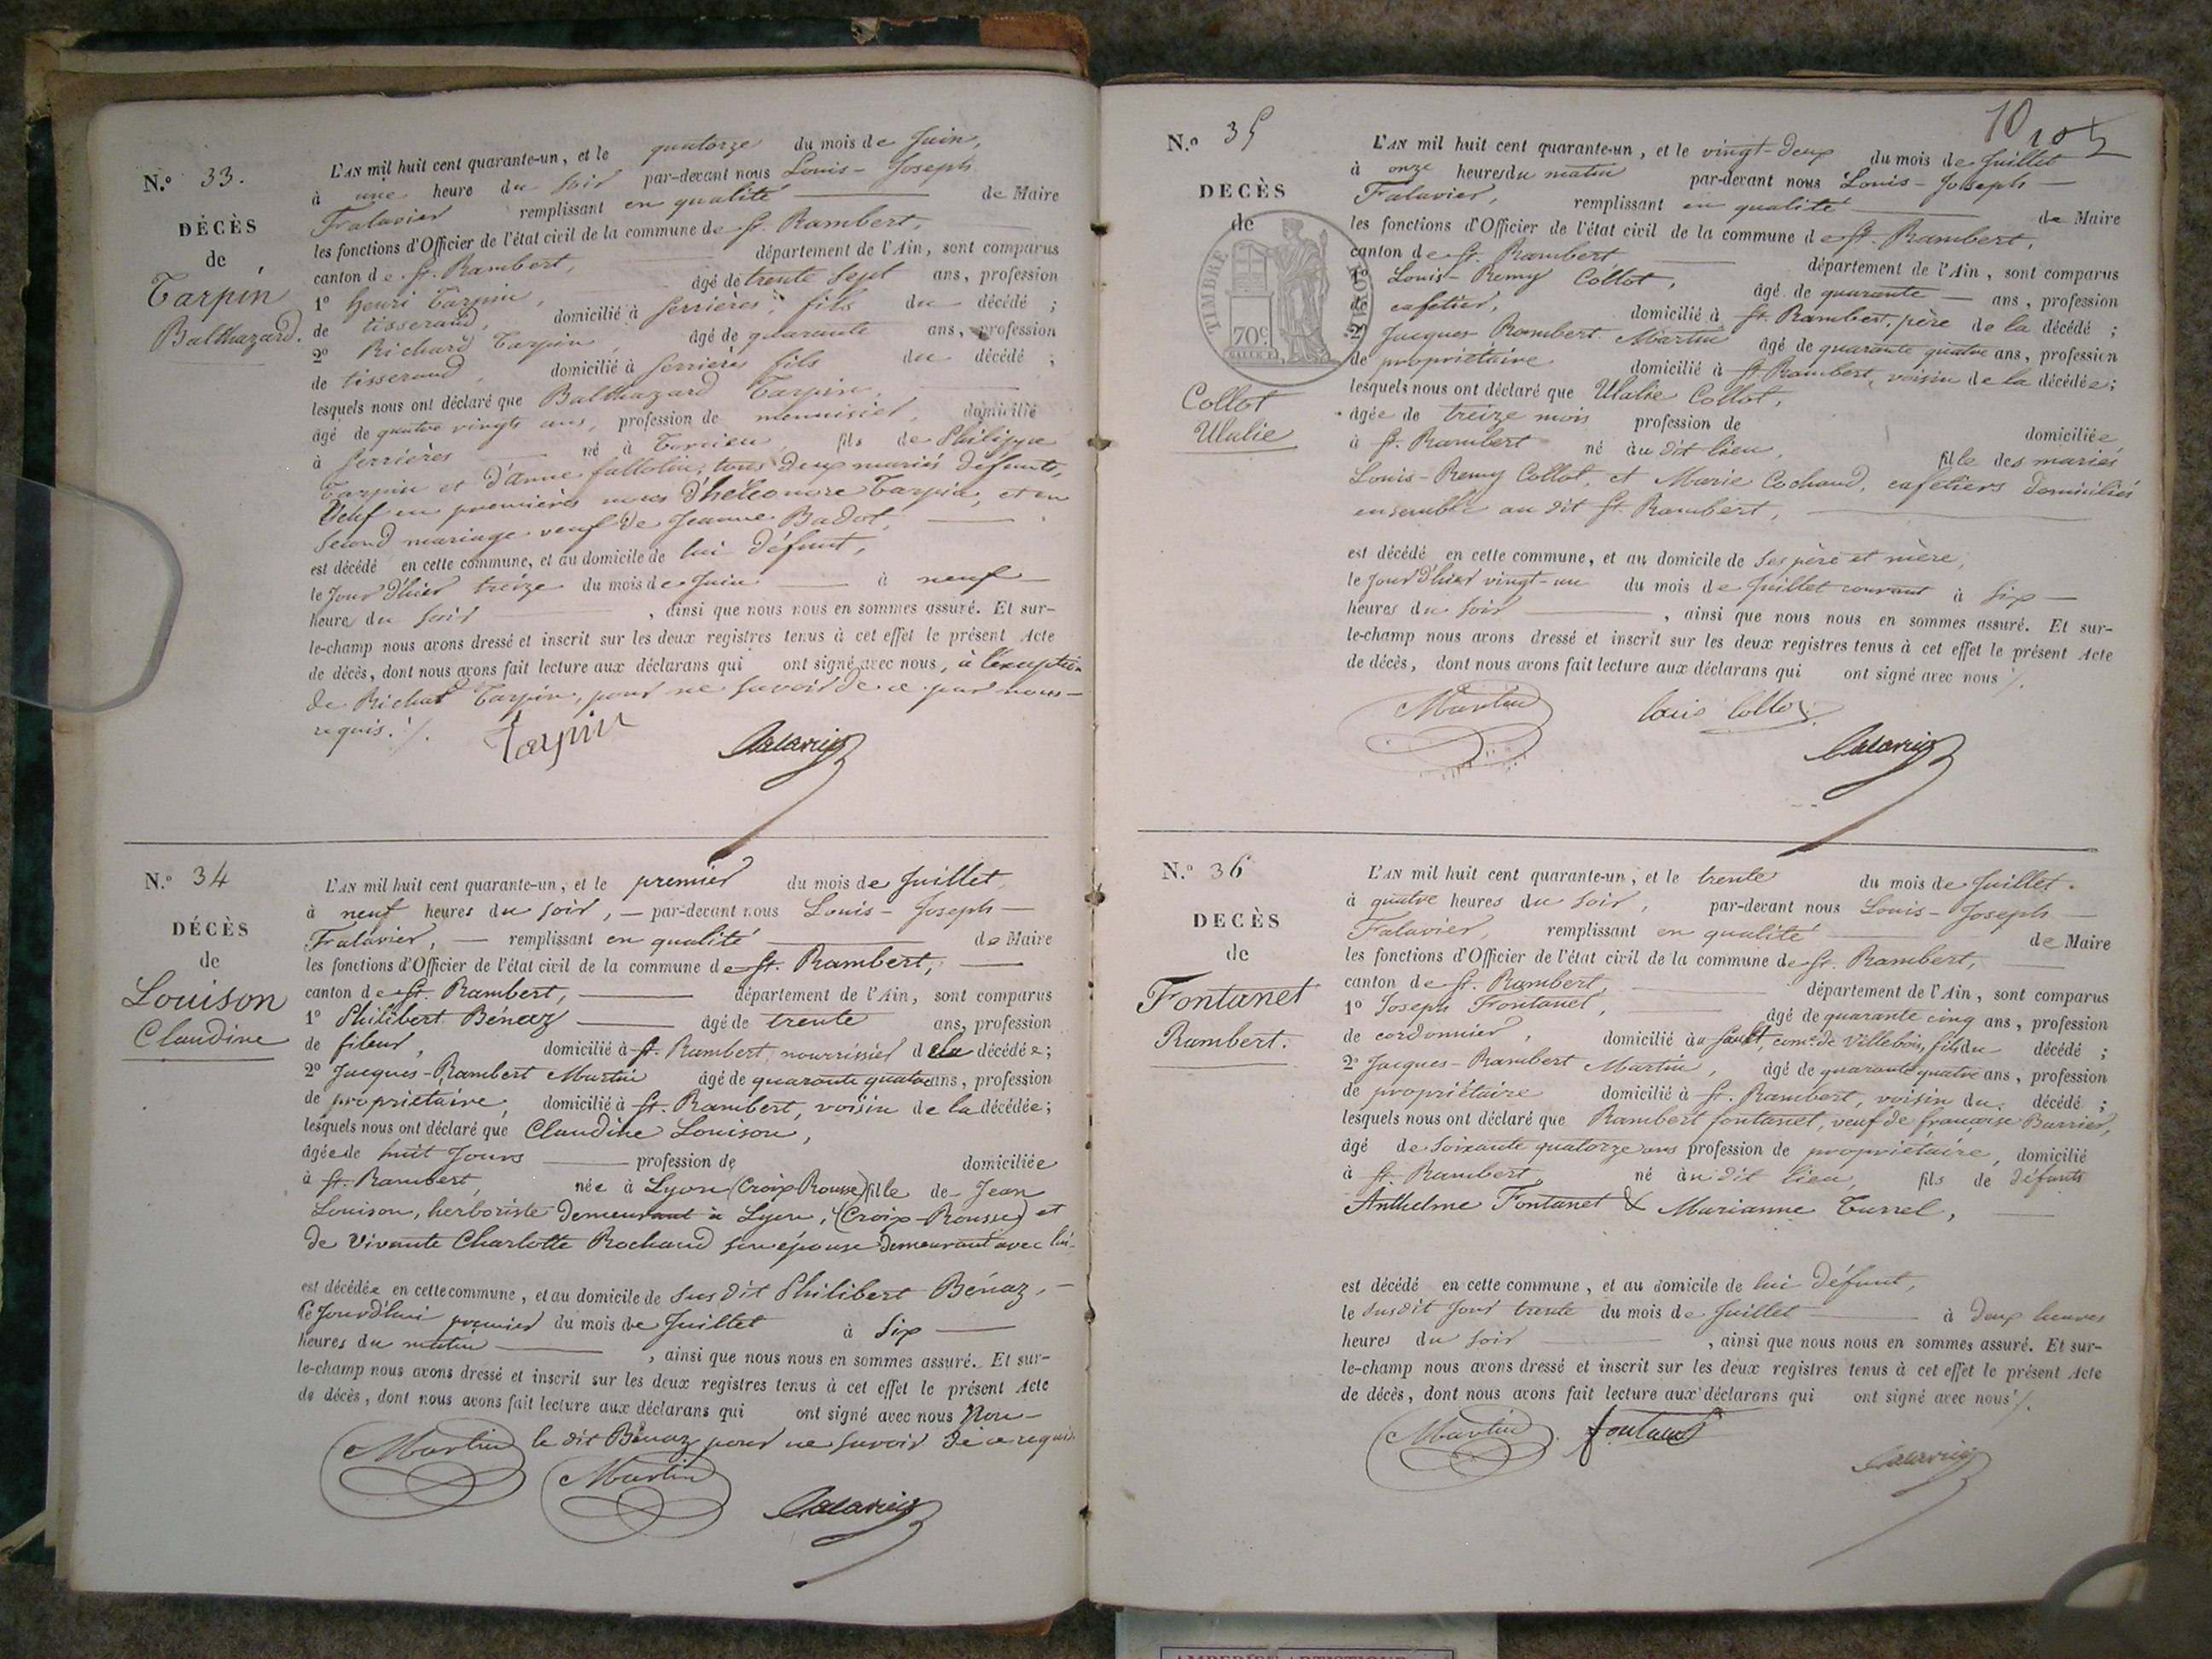 N.º 33.
DÉCÈS
de
Tarpin
Balthazard.
L'AN mil huit cent quarante-un, et le quatorze du mois de Juin,
à une heure du soir par-devant nous Louis-Joseph
Falavier remplissant en qualité de Maire
les fonctions d'Officier de l'état civil de la commune de St. Rambert,
canton de St. Rambert, département de l'Ain, sont comparus
1º henri Tarpin, âgé de trente sept ans, profession
de tisserand, domicilié à Serrières, fils du décédé ;
2º Richard Tarpin, âgé de quarante ans, profession
de tisserand, domicilié à Serrières fils du décédé ;
lesquels nous ont déclaré que Balthazard Tarpin,
âgé de quatre vingts ans, profession de menuisier, domicilié
à Serrières né à Torcieu, fils de Philippe
Tarpin et d'anne fallolin, tous deux mariés défunts,
Veuf en premières noces d'héléonore Tarpin, et en
second mariage veuf de Jeanne Badot,
est décédé en cette commune, et au domicile de lui défunt,
le jour d'hier treize du mois de Juin à neuf
heure du soir, ainsi que nous nous en sommes assuré. Et sur-
le-champ nous avons dressé et inscrit sur les deux registres tenus à cet effet le présent Acte
de décès, dont nous avons fait lecture aux déclarans qui ont signé avec nous, à l'exception
de Richard Tarpin, pour ne savoir de ce par nous
requis.
Tarpin Falavier
N.º 34
DÉCÈS
de
Louison
Claudine
L'AN mil huit cent quarante-un, et le premier du mois de Juillet,
à neuf heures du soir, par-devant nous Louis-Joseph
Falavier, remplissant en qualité de Maire
les fonctions d'Officier de l'état civil de la commune de St. Rambert,
canton de St. Rambert, département de l'Ain, sont comparus
1º Philibert Bénaz âgé de trente ans, profession
de fileur, domicilié à St. Rambert, nourrissier de la décédée ;
2º Jacques-Rambert Martin âgé de quarante quatre ans, profession
de propriétaire, domicilié à St. Rambert, voisin de la décédée ;
lesquels nous ont déclaré que Claudine Louison,
âgée de huit Jours profession de domiciliée
à St. Rambert, née à Lyon (Croix Rousse) fille de Jean
Louison, herboriste demeurant à Lyon, (Croix-Rousse) et
de Vivante Charlotte Rochaud son épouse demeurant avec lui.
est décédée en cette commune, et au domicile de susdit Philibert Bénaz,
Ce Jourd'hui premier du mois de Juillet à Six
heures du matin, ainsi que nous nous en sommes assuré. Et sur-
le-champ nous avons dressé et inscrit sur les deux registres tenus à cet effet le présent Acte
de décès, dont nous avons fait lecture aux déclarans qui ont signé avec nous Non
le dit Bénaz pour ne savoir de ce requis.
Martin Martin Falavier
10
105
N.º 35
DECÈS
de
TIMBRE ROYAL
70 c
Collot
Ulalie
L'AN mil huit cent quarante-un, et le vingt-deux du mois de Juillet
à onze heures du matin par-devant nous Louis-Joseph
Falavier, remplissant en qualité de Maire
les fonctions d'Officier de l'état civil de la commune de St. Rambert,
canton de St. Rambert département de l'Ain, sont comparus
1º Louis-Remy Collot, âgé de quarante ans, profession
de cafetier, domicilié à St. Rambert, père de la décédé ;
2º Jacques-Rambert Martin âgé de quarante quatre ans, profession
de propriétaire domicilié à St. Rambert, voisin de la décédée ;
lesquels nous ont déclaré que Ulalie Collot,
âgée de treize mois profession de domiciliée
à St. Rambert né au dit lieu, fille des mariés
Louis-Remy Collot, et Marie Cochaud, cafetiers domiciliés
ensemble au dit St. Rambert,
est décédé en cette commune, et au domicile de ses père et mère,
le jour d'hier vingt-un du mois de Juillet courant à Six
heures du soir, ainsi que nous nous en sommes assuré. Et sur-
le-champ nous avons dressé et inscrit sur les deux registres tenus à cet effet le présent Acte
de décès, dont nous avons fait lecture aux déclarans qui ont signé avec nous.
Martin Louis Collot Falavier
N.º 36
DECÈS
de
Fontanet
Rambert.
L'AN mil huit cent quarante-un, et le trente du mois de Juillet.
à quatre heures du soir, par-devant nous Louis-Joseph
Falavier, remplissant en qualité de Maire
les fonctions d'Officier de l'état civil de la commune de St. Rambert,
canton de St. Rambert, département de l'Ain, sont comparus
1º Joseph Fontanet, âgé de quarante cinq ans, profession
de cordonnier, domicilié au Sault, com.e de Villebois, fils du décédé ;
2º Jacques-Rambert Martin, âgé de quarante quatre ans, profession
de propriétaire domicilié à St. Rambert, voisin du décédé ;
lesquels nous ont déclaré que Rambert fontanet, veuf de françoise Burrier,
âgé de soixante quatorze ans profession de propriétaire, domicilié
à St. Rambert, né au dit lieu, fils de défunts
Anthelme Fontanet & Marianne Turrel,
est décédé en cette commune, et au domicile de lui défunt,
le susdit jour trente du mois de Juillet à deux heures
heures du soir, ainsi que nous nous en sommes assuré. Et sur-
le-champ nous avons dressé et inscrit sur les deux registres tenus à cet effet le présent Acte
de décès, dont nous avons fait lecture aux déclarans qui ont signé avec nous.
Martin fontanet Falavier